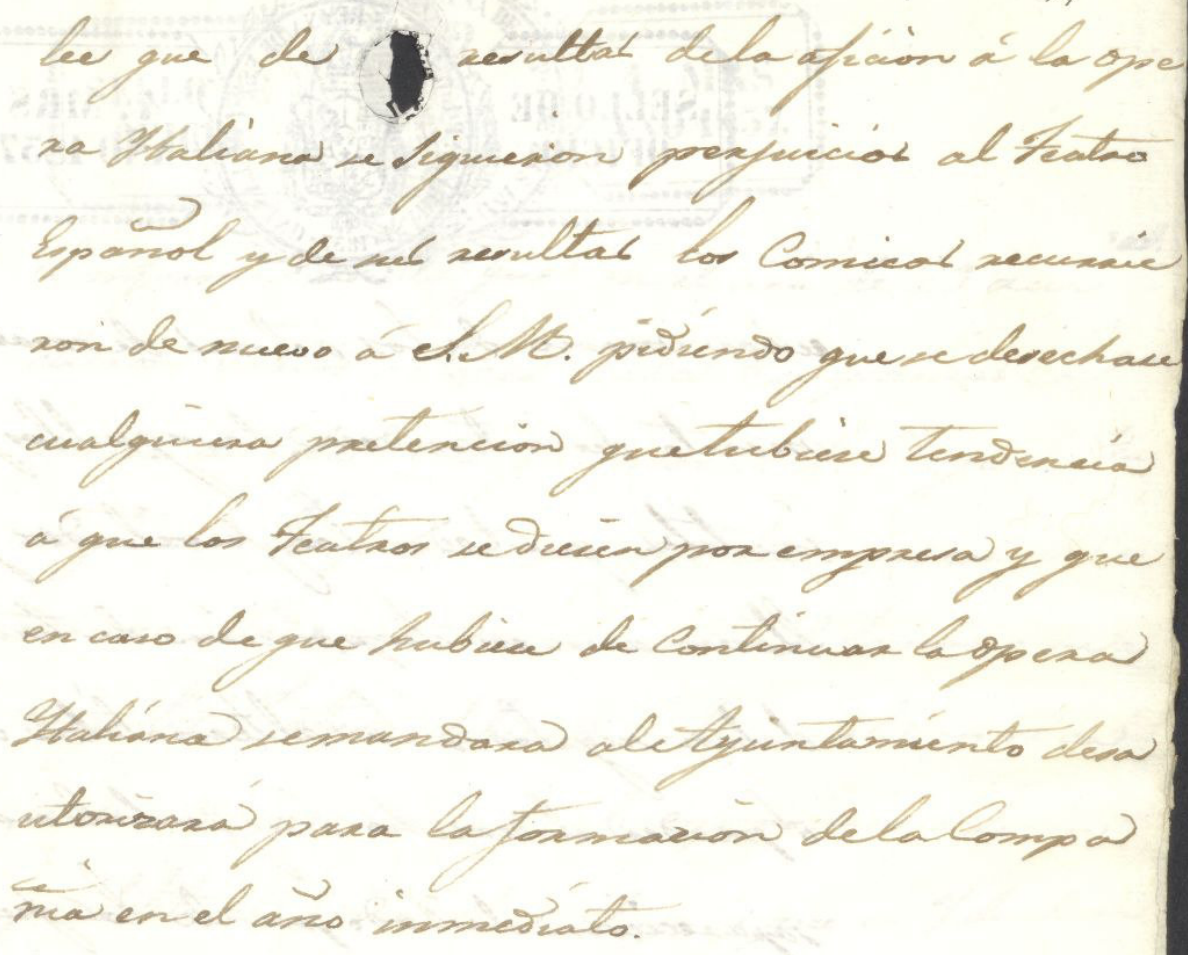 lee que de resultas de la aficion á la ope
ra Italiana se siguieron perjuicios al Teatro
Español y de sus resultas los Comicos recurrie
ron de nuevo á S. M. pidiendo que se desechase
cualquiera pretencion que tubiese tendencia
á que los Teatros se diesen por empresa y que
en caso de que hubiese de Continuar la opera
Italiana se mandara al Ayuntamiento desa
utorizara para la formacion de la Compa
ñia en el año inmediato.